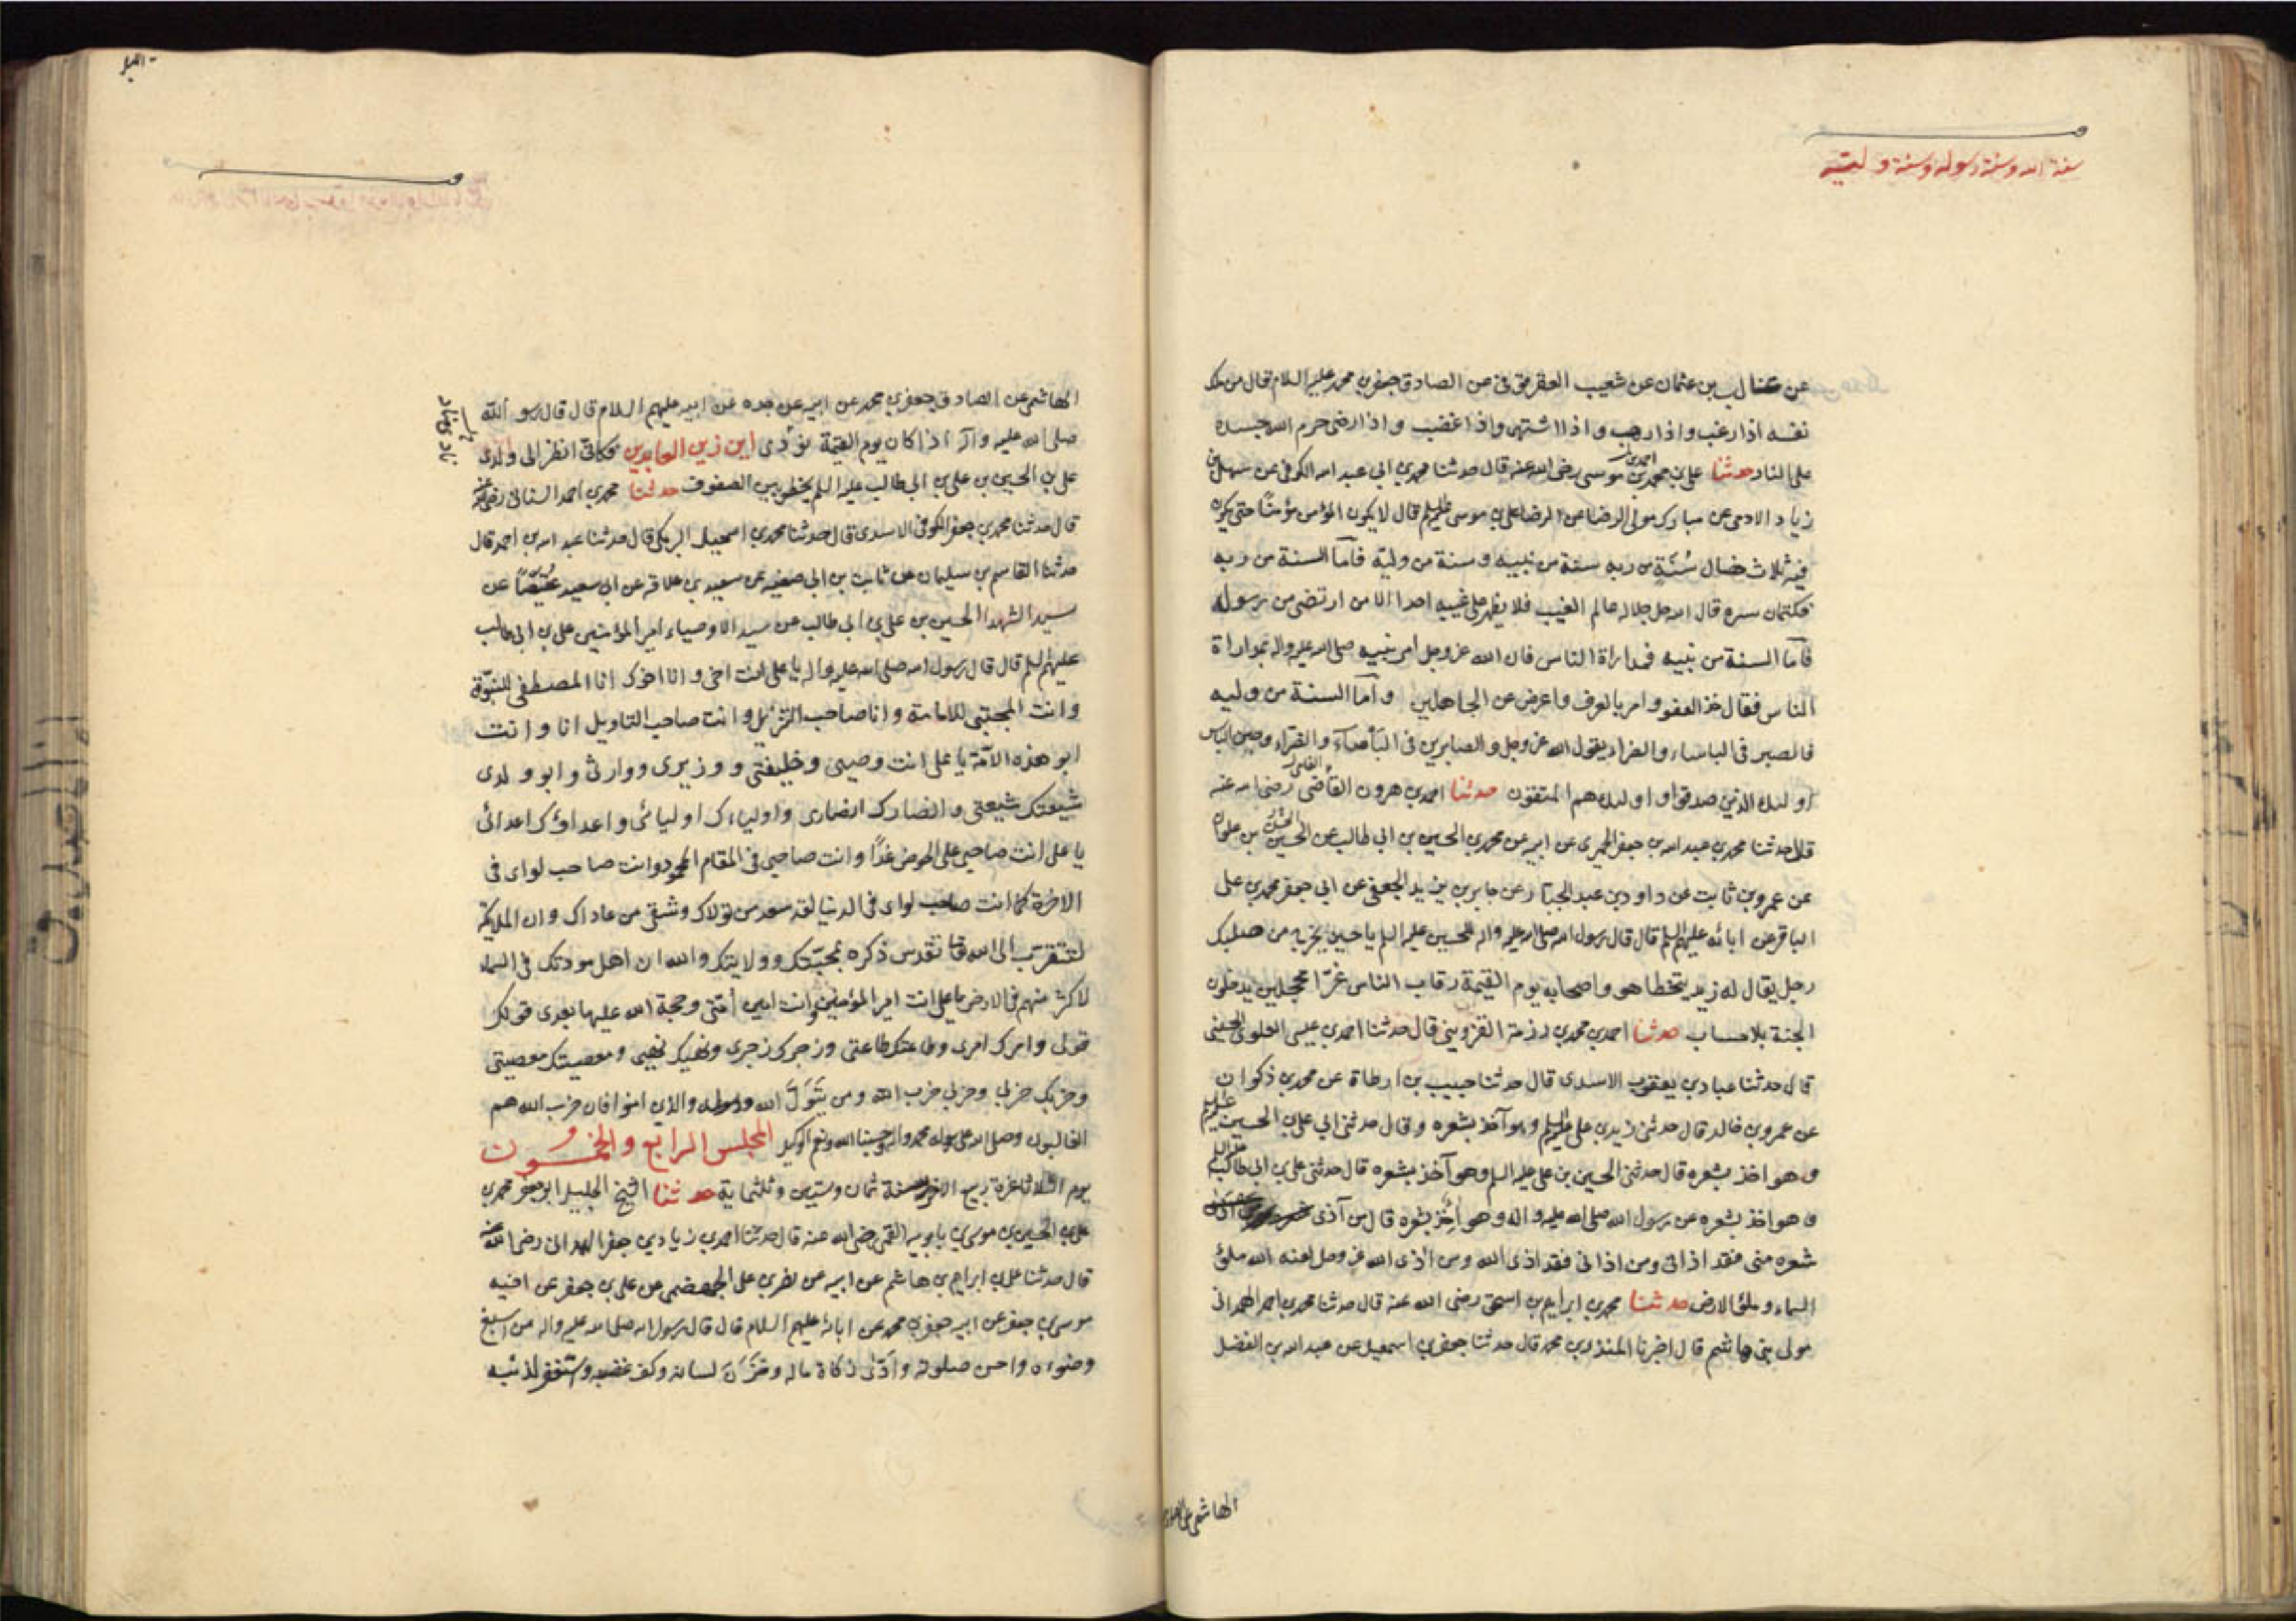 سنة الله وسنة رسوله وسنة وليه
عن بن عثمان عن شعيب العقرقوفى عن الصادق جعفر بن محمد عليه السلام قال من ملك
نفسه اذا رغب واذا رهب واذا اشتهى واذا غضب واذا رضى حرم الله جسده
على النار حدثنا على بن محمد بن موسى رضى الله عنه قال حدثنا محمد بن ابى عبد الله الكوفى عن سهل بن
احمد بن
زياد الادمى عن مبارك مولى الرضا عن الرضا على بن موسى عليه السلم قال لا يكون المؤمن مؤمنًا حتى يكون
فيه ثلاث خصال سُنَّةٍ من ربه سنة من نبيه وسنة من وليه فامّا السنة من ربه
فكتمان سره قال الله جل جلاله عالم الغيب فلا يظهر على غيبه احدا الا من ارتضى من رسول
فامّا السنة من نبيه فمداراة الناس فان الله عز وجل امر نبيه صلى الله عليه واله بمداراة
الناس فقال خذ العفو وامر بالعرف واعرض عن الجاهلين وامّا السنة من وليه
فالصبر فى الباساء والضراء يقول الله عز وجل والصابرين فى البأسآء والضراء وحين الباس
اولئك الذين صدقوا واولئك هم المتقون حدثنا احمد بن هرون القاضى رضى الله عنه
قال حدثنا محمد بن عبد الله بن جعفر الحميرى عن ابيه عن محمد بن الحسين بن ابى طالب عن الحسين بن علوان
عن عمرو بن ثابت عن داود بن عبد الجبار عن جابر بن يزيد الجعفى عن ابى جعفر محمد بن على
الباقر عن ابائه عليهم السلم قال قال رسول الله صلى الله عليه واله للحسين عليه السلم يا حسين يخرج من صلبك
رجل يقال له زيد يتخطا هو واصحابه يوم القيمة رقاب الناس غرّا محجلين يدخلون
الجنة بلا حساب حدثنا احمد بن محمد بن رزمة القزوينى قال حدثنا احمد بن عيسى العلوى الحسينى
قال حدثنا عباد بن يعقوب الاسدى قال حدثنا حبيب بن ارطاة عن محمد بن ذكوان
عن عمرو بن خالد قال حدثنى زيد بن على عليه السلم وهو آخذ بشعره وقال حدثنى ابى على بن الحسين عليهم
وهو اخذ بشعره قال حدثنى الحسين بن على عليه السلم وهو آخذ بشعره قال حدثنى على بن ابى طالب عليه السلم
وهو اخذ بشعره عن رسول الله صلى الله عليه واله وهو اخذ بشعره قال من آذى
شعره منى فقد اذانى ومن اذانى فقد اذى الله ومن اذى الله عز وجل لعنه الله ملئ
السماء وملئ الارض حدثنا محمد بن ابراهيم بن اسحق رضى الله عنه قال حدثنا محمد بن احمد الهمدانى
مولى بنى هاشم قال اخبرنا المنذر بن محمد قال حدثنا جعفر بن اسمعيل عن عبد الله بن الفضل
الهاشمى عن
الهاشمى عن الصادق جعفر بن محمد عن ابيه عن جده عن ابيه عليهم السلام قال قال رسو الله
صلى الله عليه وآله اذا كان يوم القيمة نؤدى اين زين العابدين فكانّى انظر الى ولدى
على بن الحسين بن على بن ابى طالب عليه السلم يخطر بين الصفوف حدثنا محمد بن احمد السنانى رضى الله عنه
قال حدثنا محمد بن جعفر الكوفى الاسدى قال حدثنا محمد بن اسمعيل البرمكى قال حدثنا عبد الله بن احمد قال
حدثنا القاسم بن سليمان عن ثابت بن ابى صفيه عن سعيد بن علاقه عن ابى سعيد عقيصًا عن
سيد الشهدا الحسين بن على بن ابى طالب عن سيد الاوصياء امير المؤمنين على بن ابى طالب
عليهم السلم قال قال رسول الله صلى الله عليه واله يا على انت اخى وانا اخوك انا المصطفى للنبوّة
وانت المجتبى للامامة وانا صاحب التنزيل وانت صاحب التاويل انا وانت
ابو هذه الامّة يا على انت وصيى وخليفتى ووزيرى ووارثى وابو ولدى
شيعتك شيعتى وانصارك انصارى واولياءك اوليائى واعداؤك اعدائى
يا على انت صاحبى على الحوض غدًا وانت صاحبى فى المقام المحمود وانت صاحب لواى فى
الاخرة كما انت صاحب لواى فى الدنيا لقد سعد من تولاك وشقى من عاداك وان الملائكة
لتتقرّب الى الله تقدس ذكره بمحبّتك وولايتك والله ان اهل مودتك فى السماء
لاكثر منهم فى الارض يا على انت امير المؤمنين وانت امين أمتى وحجة الله عليها بعدى قولك
قولى وامرك امرى وطاعتك طاعتى وزجرك زجرى ونهيك نهيى ومعصيتك معصيتى
وحزبك حزبى وحزبى حزب الله ومن يَتَوَلَّ الله ورسوله والذين امنوا فان حزب الله هم
الغالبون وصلى الله على رسوله محمد واله وحسبنا الله ونعم الوكيل المجلس الرابع والخمسون
يوم الثلثا غرة ربيع الاخر سنة ثمان وستين وثلثماية حدثنا الشيخ الجليل ابو جعفر محمد بن
على بن الحسين بن موسى بن بابويه القمى رضى الله عنه قال حدثنا احمد بن زياد بن جعفر الهمدانى رضى الله عنه
قال حدثنا على بن ابراهيم بن هاشم عن ابيه عن نصر بن على الجهضمى عن على بن جعفر عن اخيه
موسى بن جعفر عن ابيه جعفر بن محمد عن ابائه عليهم السلام قال قال رسول الله صلى الله عليه واله من اسبغ
وضوءه واحسن صلوته وادّى زكاة ماله وخَزَنَ لسانه وكف غضبه واستغفر لذنبه